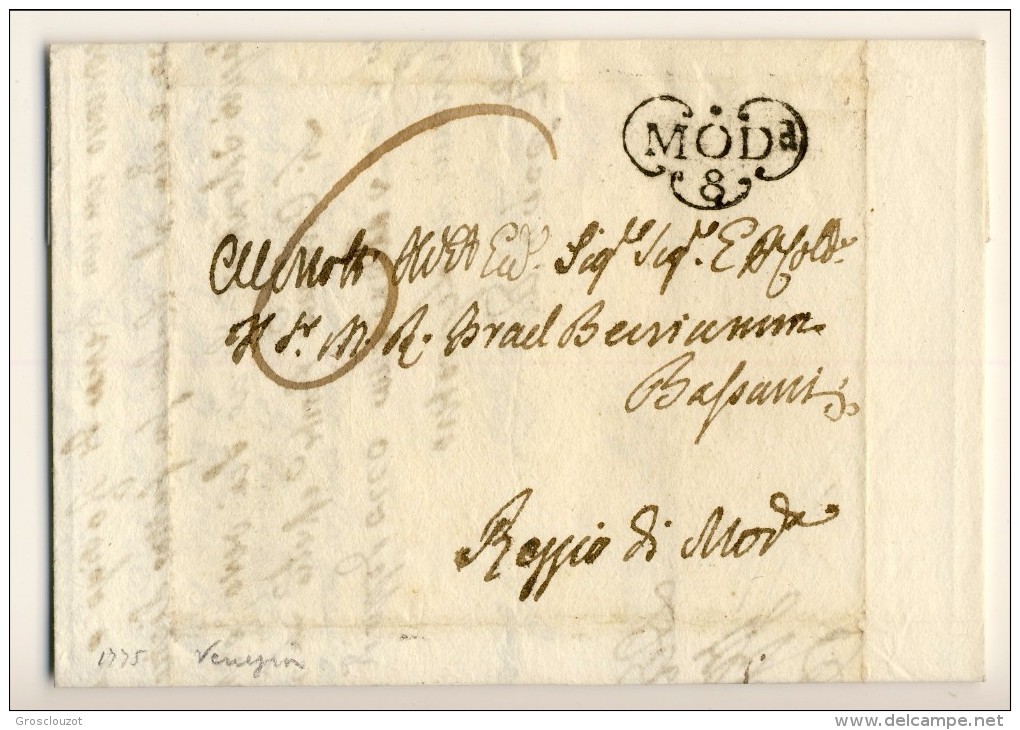 MODa
8
All Molto Ecc. Sigre Sigre
Sr. M. R. Israel Beniamin
Bassani
Reggio di Moda
1775 Venezia
Grosclouzot
www.delcampe.net